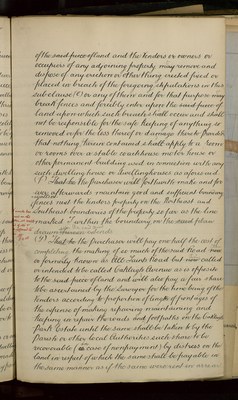 of the said piece of land and the lenders or owners or
occupiers of any adjoining property may remove and
dispose of any erection or other thing erected fixed or
placed in breach of the foregoing stipulations in this
sub-clause or any of them and for that purpose may
break fences and forcibly enter upon the said piece of
land upon which such breach shall occur and shall
not be responsible for the safe keeping of anything so
removed or for the loss thereof or damage thereto Provided
that nothing herein contained shall apply to a room
or rooms over a stable coachhouse motor house or
other permanent building used in connection with any
such dwellinghouse or dwellinghouses as aforesaid
That the Purchasers will forthwith make and for
ever afterwards maintain good and sufficient boundary
fences next the lenders property on the Northeast and
Southeast boundaries of the property so far as the line
marked T within the boundary on the said plan
drawn
That the Purchasers will pay one half the cost of
completing the making of so much of the said Road now
or formerly known as All Tweb Road but now called
or intended to be called Oakleigh Avenue as is opposite
to the said piece of land and will also pay a fair share
to be ascertained by the Surveyor for the time being of the
lenders according to proportion of length of frontages of
the expense of making repairing maintaining and
keeping in repair the roads and footpaths on the Oakleigh
Park Estate until the same shall be taken to by the
Parish or other local Authorities such share to be
recoverable (in case of nonpayment) by distress on the
land in respect of which the same shall be payable in
the same manner as if the same were rent in arrear